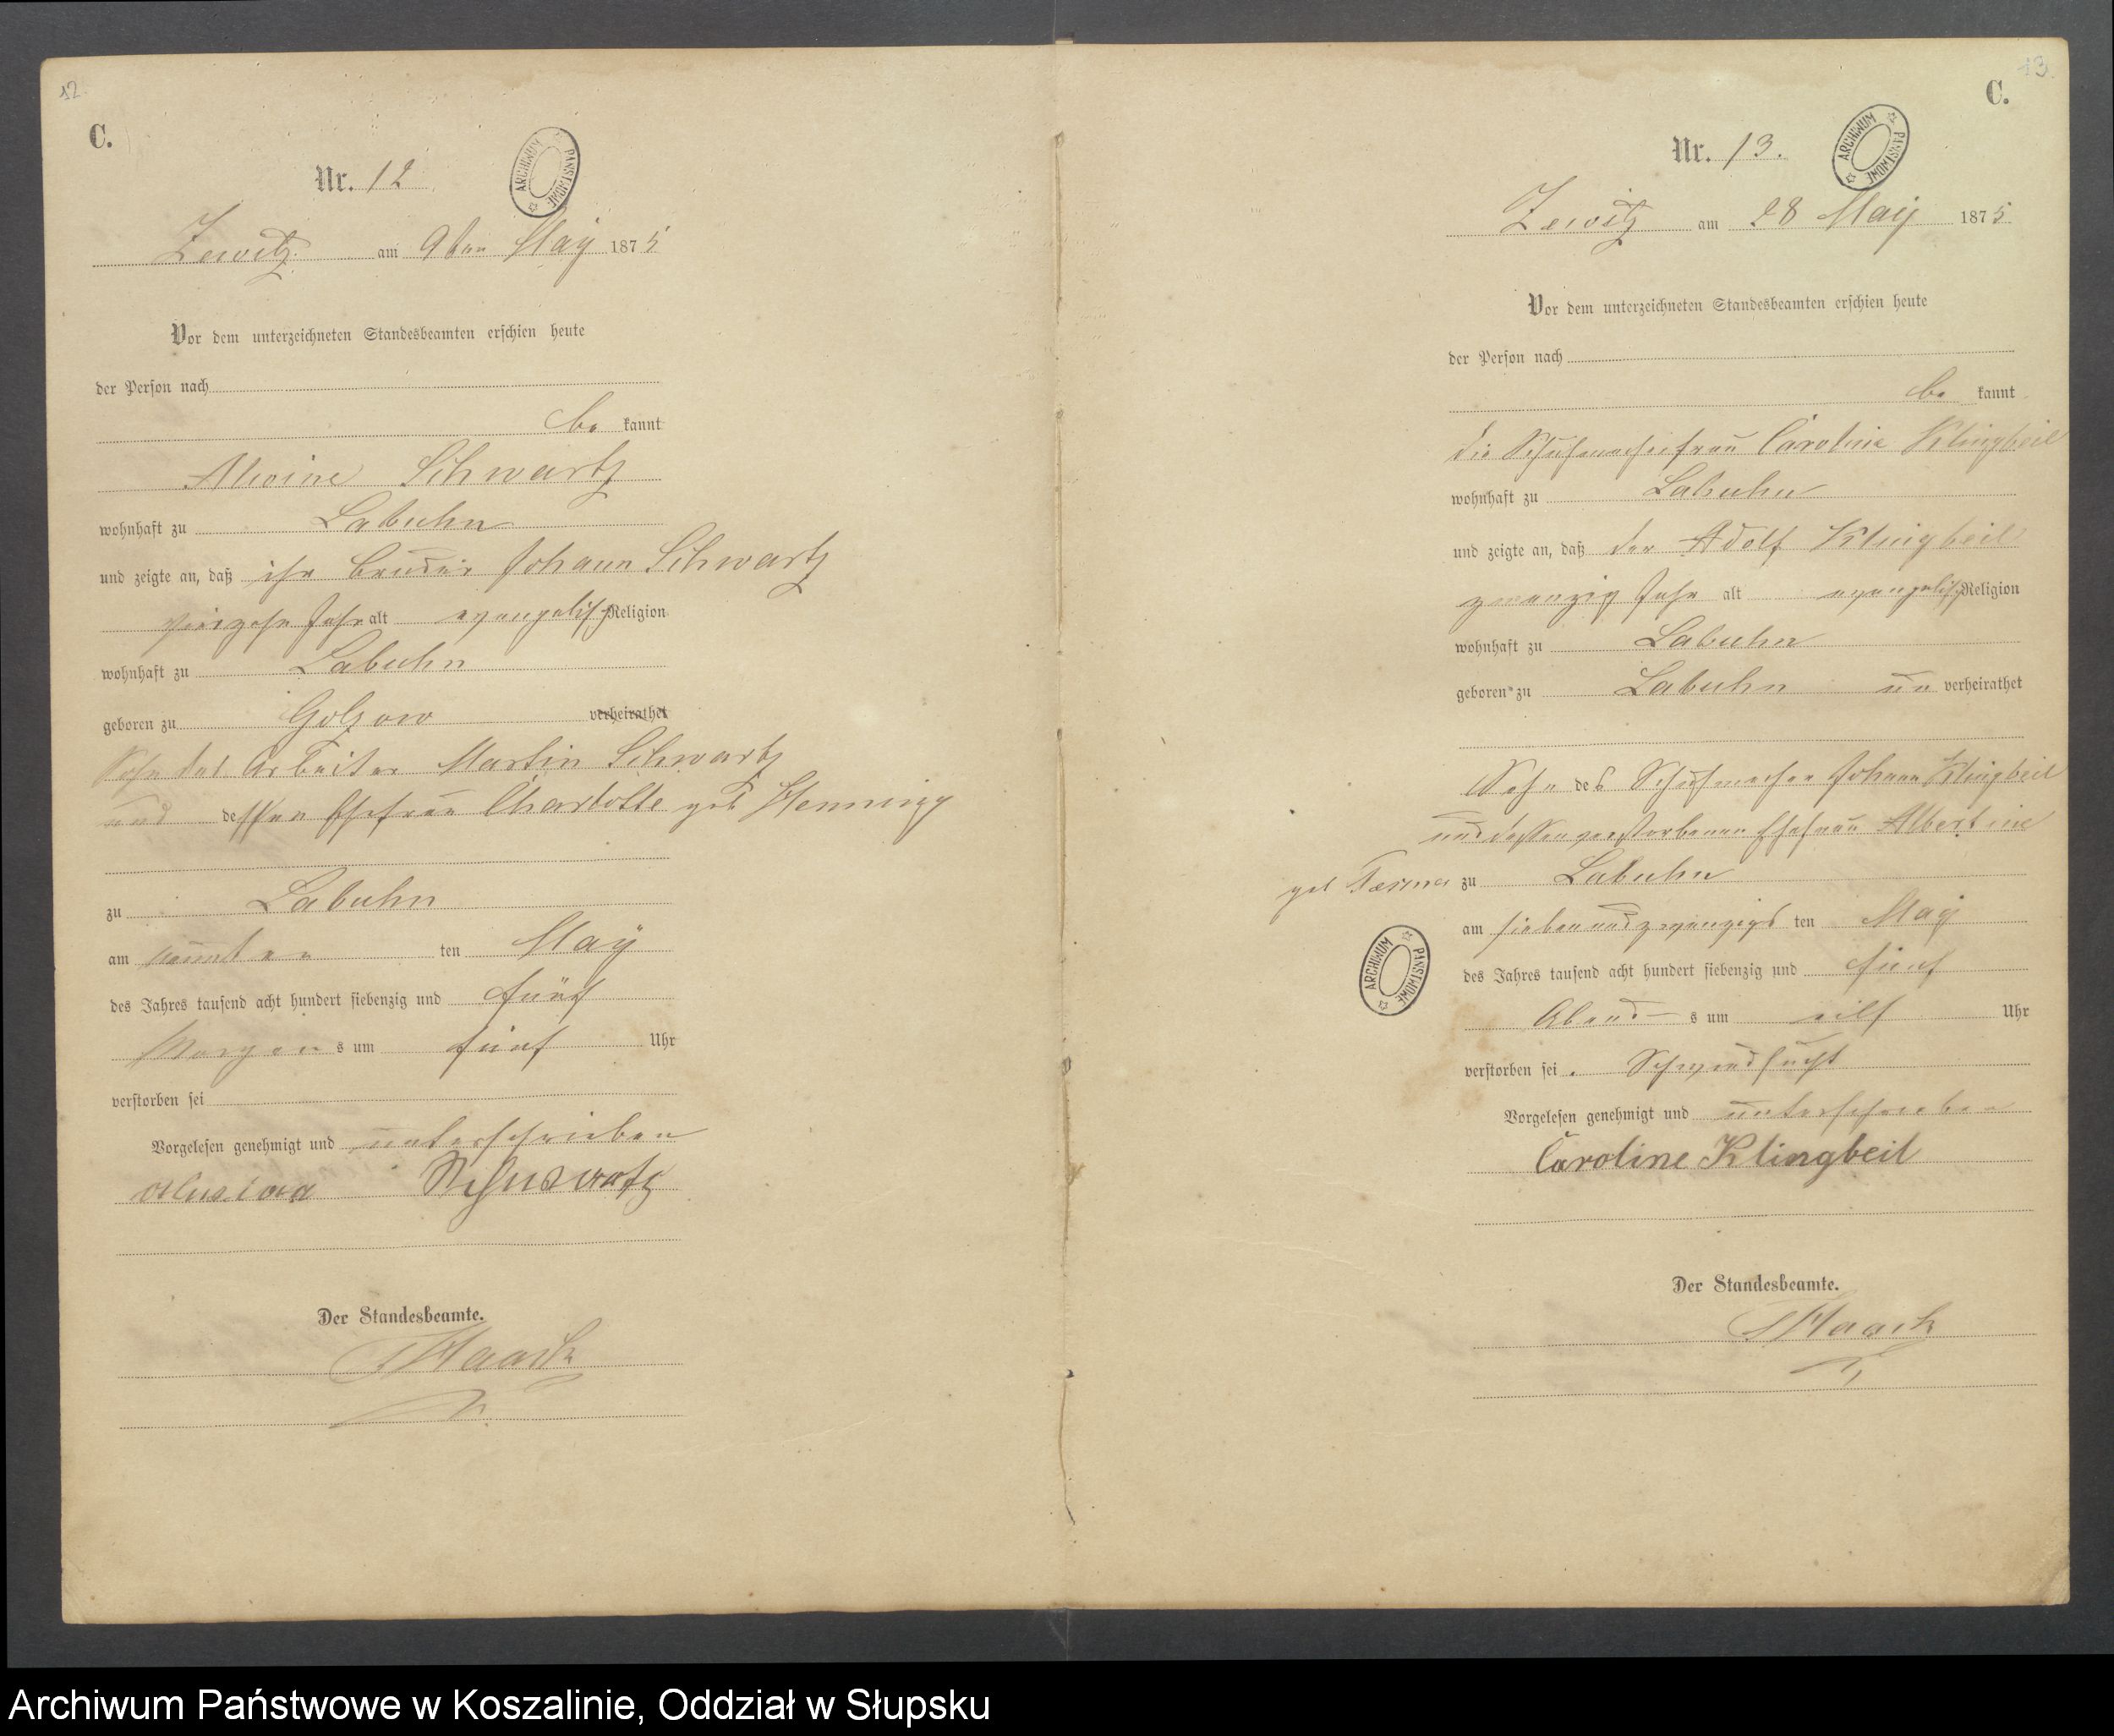 12.
C.
Nr. 12
ARCHIWUM PAŃSTWOWE
Zewitz am 9ten May 1875
Vor dem unterzeichneten Standesbeamten erschien heute
der Person nach
be kannt
Alwine Schwartz
wohnhaft zu Labuhn
und zeigte an, daß ihr Bruder Johann Schwartz
vierzehn Jahr alt evangelisch Religion
wohnhaft zu Labuhn
geboren zu Golzow verheirathet
Sohn des Arbeiter Martin Schwartz
und dessen Ehefrau Charlotte geb Henning
zu Labuhn
am neunten ten May
des Jahres tausend acht hundert siebenzig und fünf
Morgen s um fünf Uhr
verstorben sei
Vorgelesen genehmigt und unterschrieben
Schwartz
Der Standesbeamte.
Haack
13.
C.
Nr. 13.
ARCHIWUM PAŃSTWOWE
Zewitz am 28 May 1875
Vor dem unterzeichneten Standesbeamten erschien heute
der Person nach
be kannt
die Schuhmacherfrau Caroline Klingbeil
wohnhaft zu Labuhn
und zeigte an, daß der Adolf Klingbeil
zwanzig Jahr alt evangelisch Religion
wohnhaft zu Labuhn
geboren zu Labuhn un verheirathet
Sohn des Schuhmacher Johann Klingbeil
und dessen verstorbenen Ehefrau Albertine
geb zu Labuhn
ARCHIWUM PAŃSTWOWE
am siebenundzwanzigs ten May
des Jahres tausend acht hundert siebenzig und fünf
Abend s um eilf Uhr
verstorben sei. Schwindsucht
Vorgelesen genehmigt und unterschrieben
Caroline Klingbeil
Der Standesbeamte.
Haack
Archiwum Państwowe w Koszalinie, Oddział w Słupsku